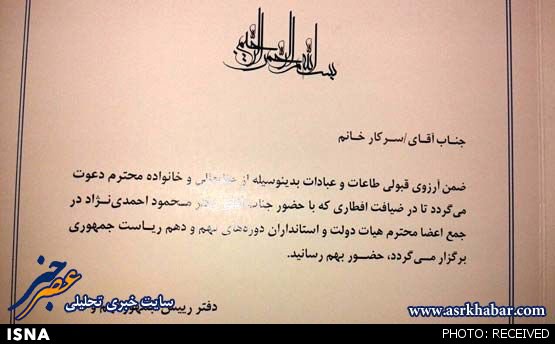 بسم الله الرحمن الرحیم
جناب آقای/سرکار خانم
ضمن آرزوی قبولی طاعات و عبادات بدینوسیله از و خانواده محترم دعوت
می‌گردد تا در ضیافت افطاری که با حضور جناب محمود احمدی‌نژاد در
جمع اعضا محترم هیات دولت و استانداران دوره‌های نهم و دهم ریاست جمهوری
برگزار می‌گردد، حضور بهم رسانید.
دفتر رییس
عصر خبر
سایت خبری تحلیلی
www.asrkhabar.com
ISNA
PHOTO: RECEIVED